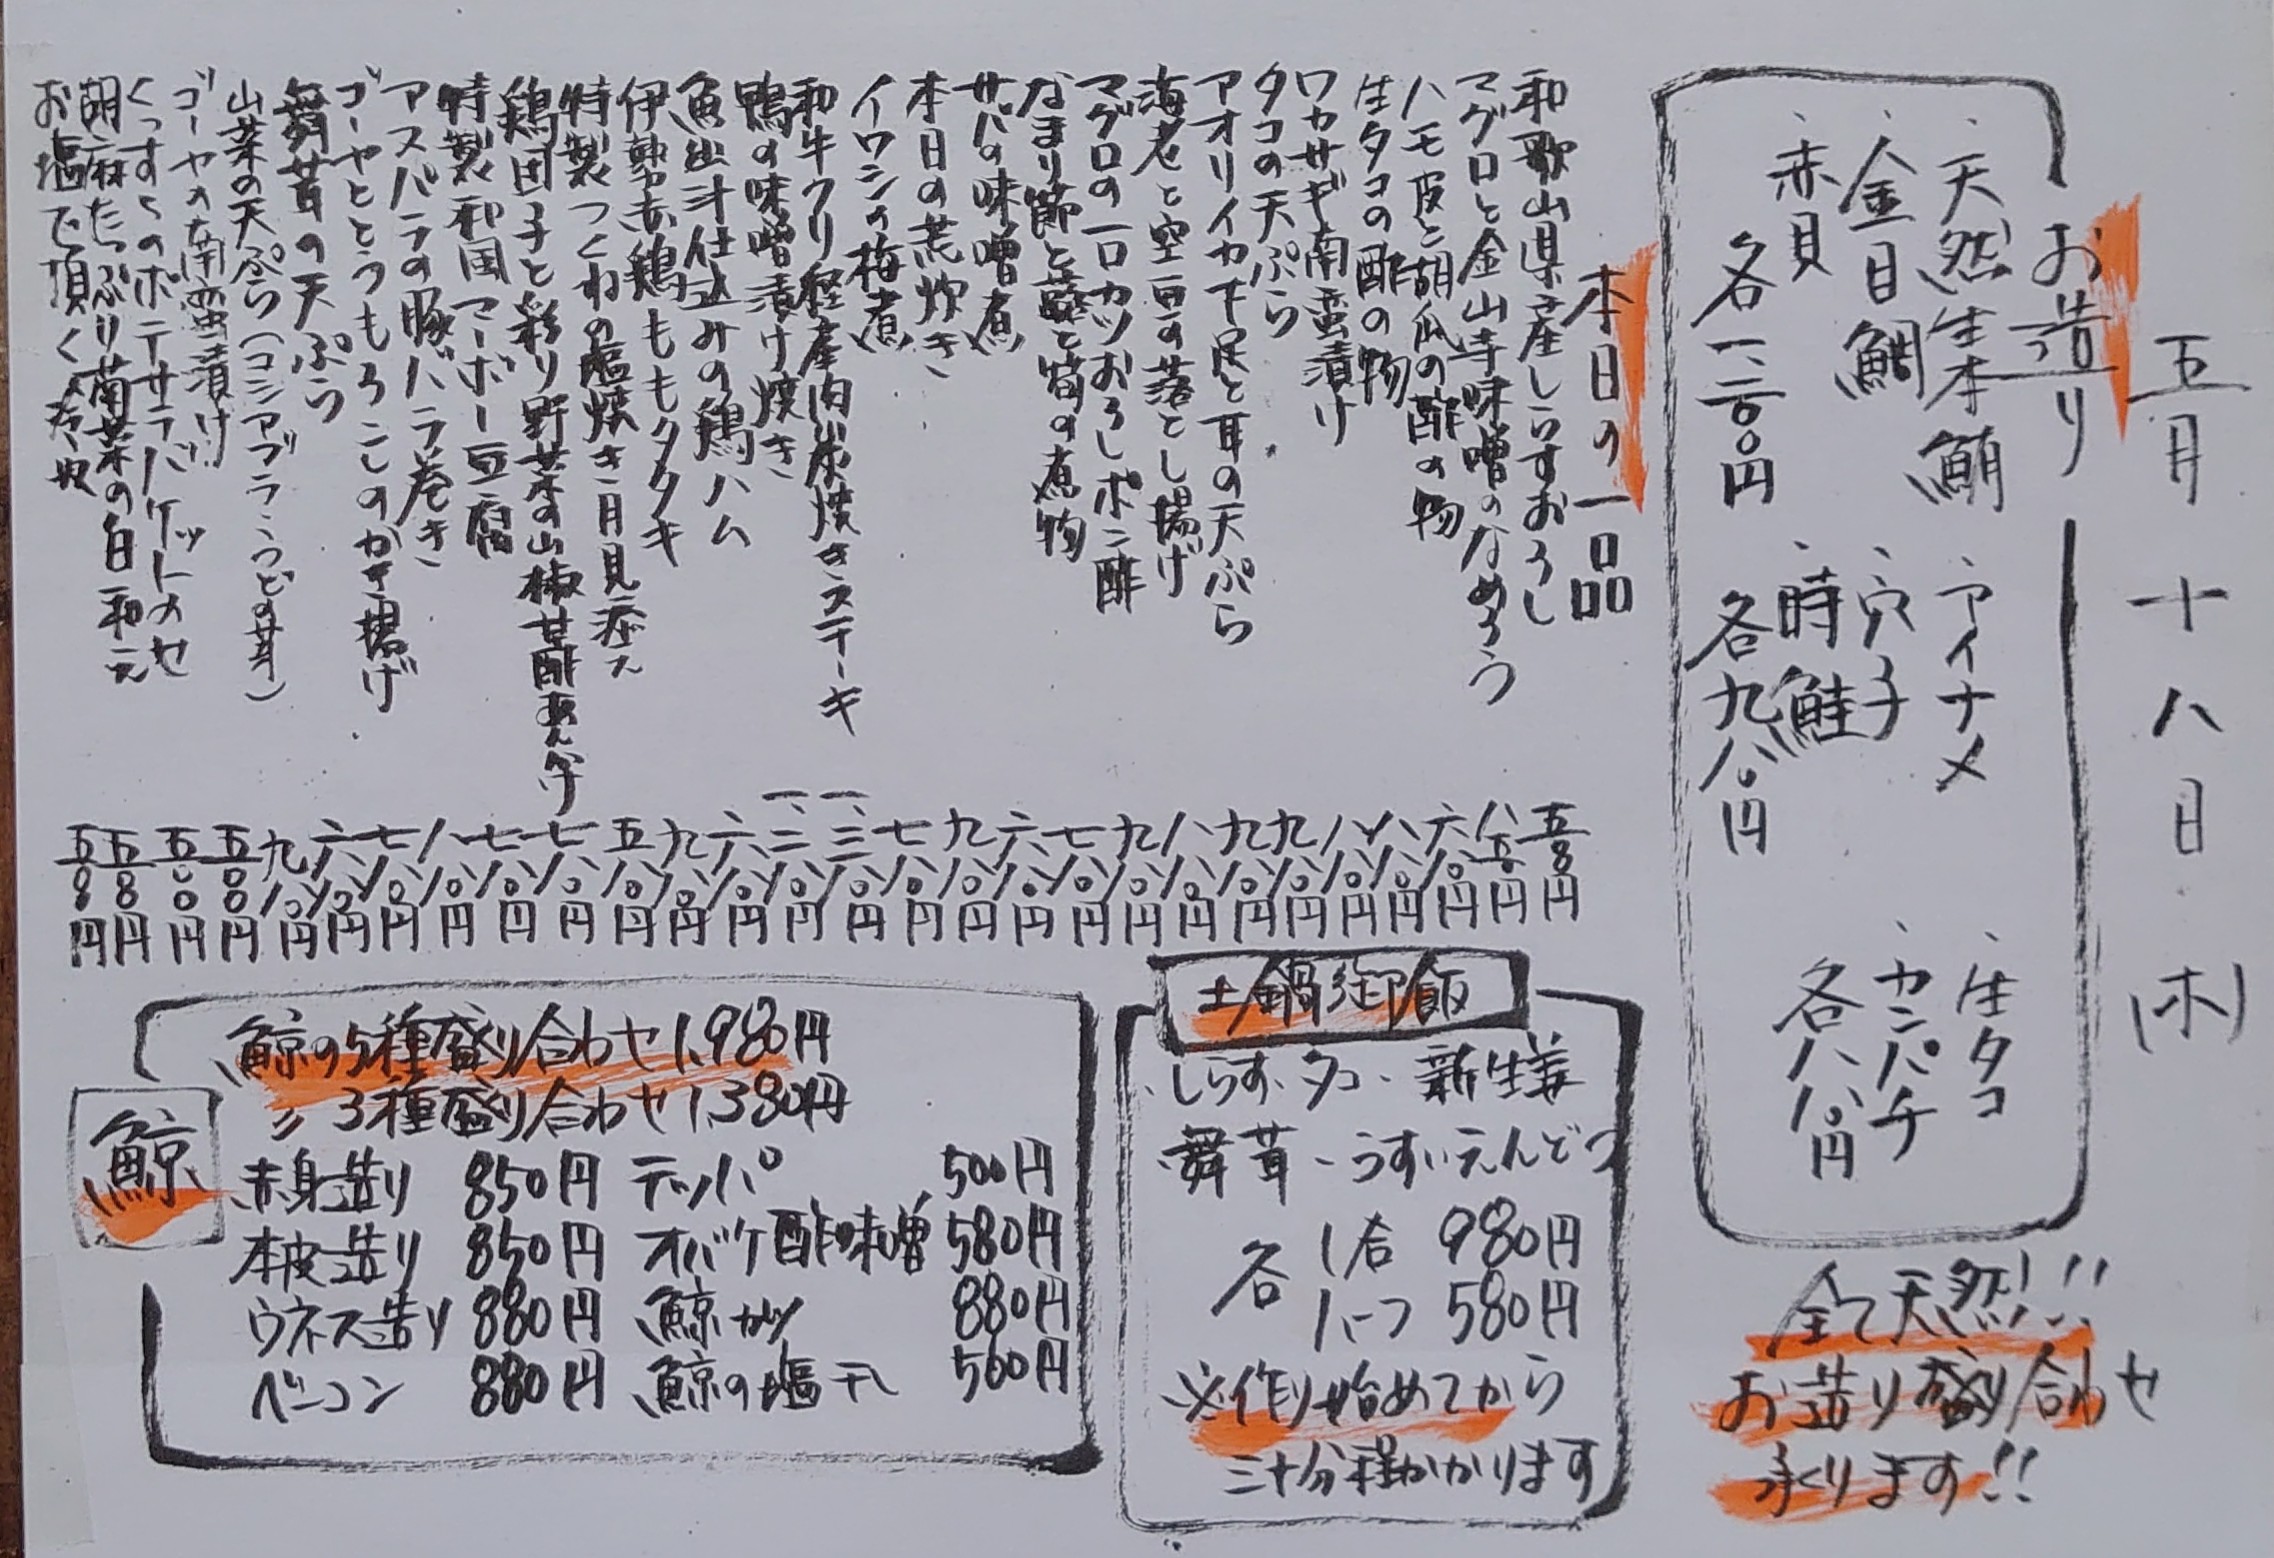 五月十八日(木)
お造り
・天然生本鮪
・金目鯛
・赤貝
各一、二〇〇円
・アイナメ
・穴子
・時鮭
各九八〇円
・生タコ
・カンパチ
各八八〇円
全て天然!!
お造り盛り合わせ
承ります!!
本日の一品
和歌山県産しらすおろし 五八〇円
マグロと金山寺味噌のなめろう 八五〇円
ハモ皮と胡瓜の酢の物 六八〇円
生タコの酢の物 八八〇円
ワカサギ南蛮漬け 八八〇円
タコの天ぷら 九八〇円
アオリイカ下足と耳の天ぷら 九八〇円
海老と空豆の落とし揚げ 八八〇円
マグロの一口カツおろしポン酢 九八〇円
なまり節と蕗と筍の煮物 七八〇円
サバの味噌煮 六八〇円
本日の荒炊き 九八〇円
イワシの梅煮 七八〇円
和牛クリ経産肉炭焼きステーキ 一、三八〇円
鴨の味噌漬け焼き 一、二八〇円
魚出汁仕込みの鶏ハム 六八〇円
伊勢赤鶏ももタタキ 九八〇円
特製つくねの塩焼き月見添え 五八〇円
鶏団子と彩り野菜の山椒甘酢あんかけ 七八〇円
特製和風マーボー豆腐 七八〇円
アスパラの豚バラ巻き 八八〇円
ゴーヤととうもろこしのかき揚げ 七八〇円
舞茸の天ぷら 六八〇円
山菜の天ぷら(コシアブラ・うどの芽) 九八〇円
ゴーヤの南蛮漬け 五〇〇円
くんすものポテサラバケットのせ 五〇〇円
胡麻たっぷり菊菜の白和え 五八〇円
お塩で頂く冷奴 五八〇円
土鍋御飯
・しらす・タコ・新生姜
・舞茸・うすいえんどう
各 1合 980円
1/2つ 580円
※作り始めてから
三十分程かかります
鯨
鯨の5種盛り合わせ 1,980円
〃 3種盛り合わせ 1,380円
赤身造り 850円 テッパ 500円
本皮造り 850円 オバケ酢味噌 580円
ウネス造り 880円 鯨カツ 880円
ベーコン 880円 鯨の塩干し 500円